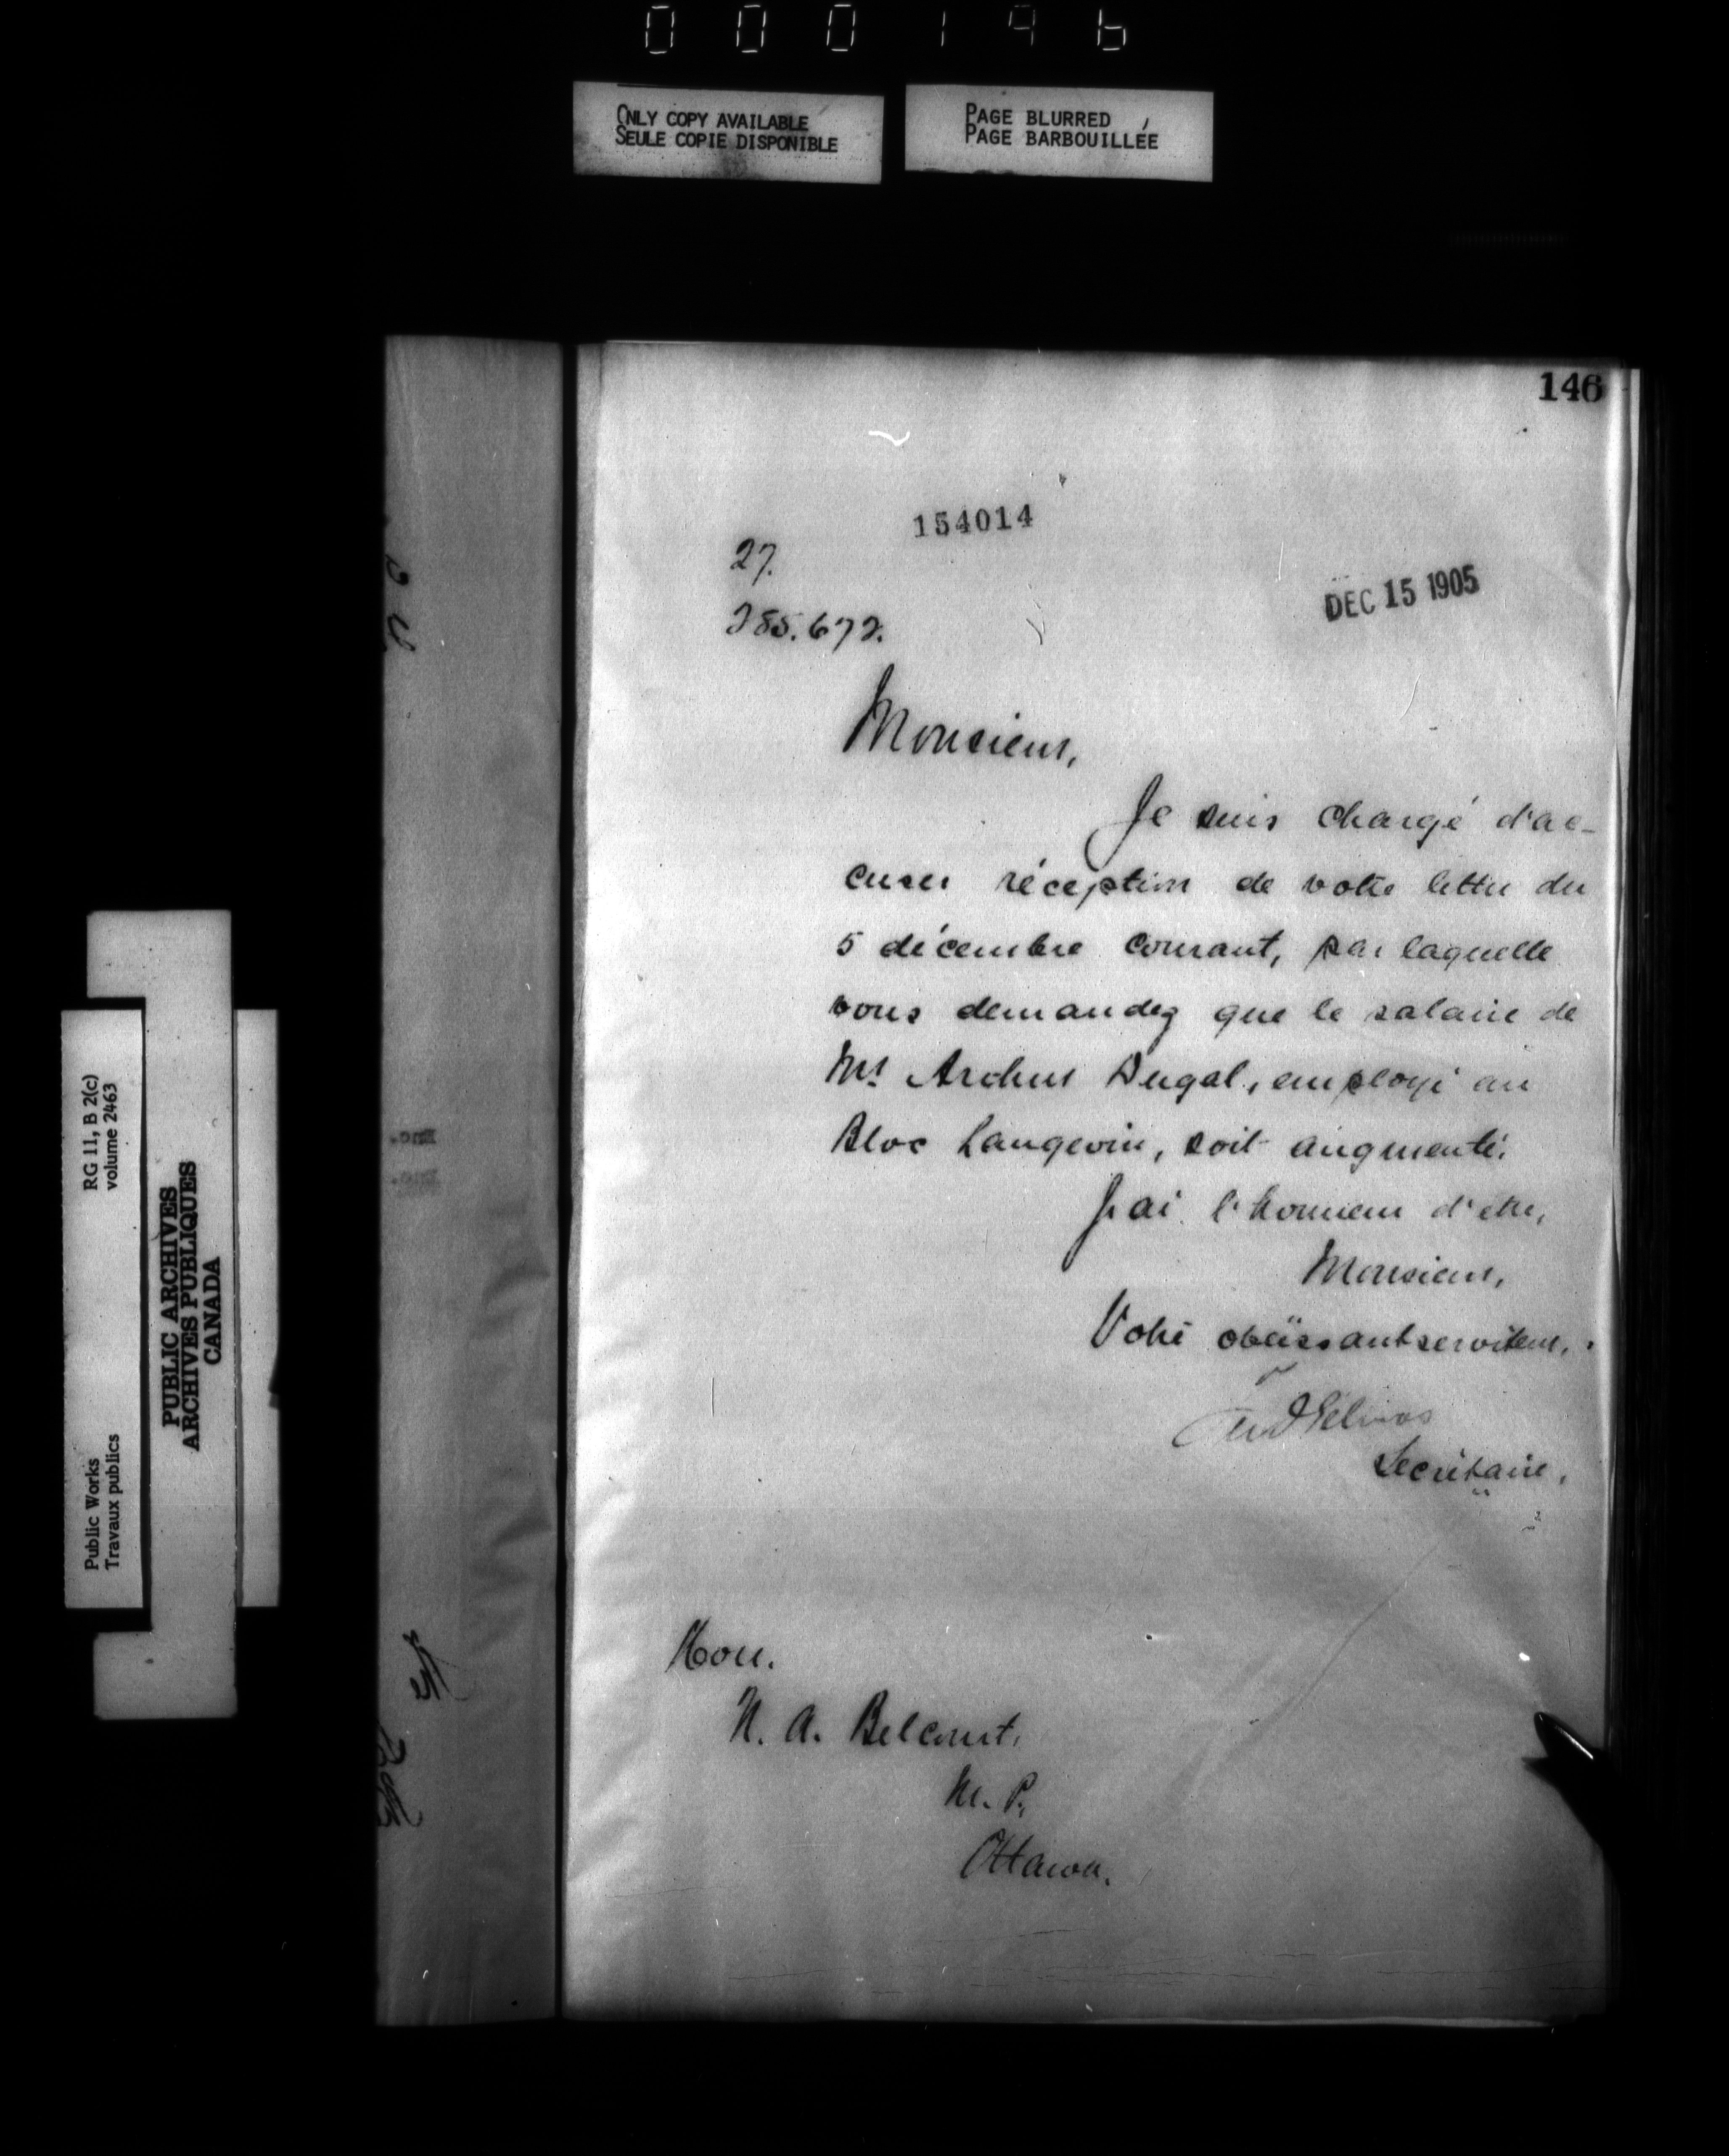 000196
ONLY COPY AVAILABLE
SEULE COPIE DISPONIBLE
PAGE BLURRED
PAGE BARBOUILLÉE
146
154014
27.
285.672.
DEC 15 1905
Monsieur,
Je suis chargé d'ac-
cuser réception de votre lettre du
5 décembre courant, par laquelle
vous demandez que le salaire de
Mr Dugal, employé au
Bloc Langevin, soit augmenté.
J'ai l'honneur d'etre,
Monsieur,
Votre obéissant serviteur,
Fred Gélinas
Secrétaire,
Hon.
N. A. Belcourt,
M. P.,
Ottawa.
RG 11, B 2(c)
volume 2463
Public Works
Travaux publics
PUBLIC ARCHIVES
ARCHIVES PUBLIQUES
CANADA
Enc.
Enc.